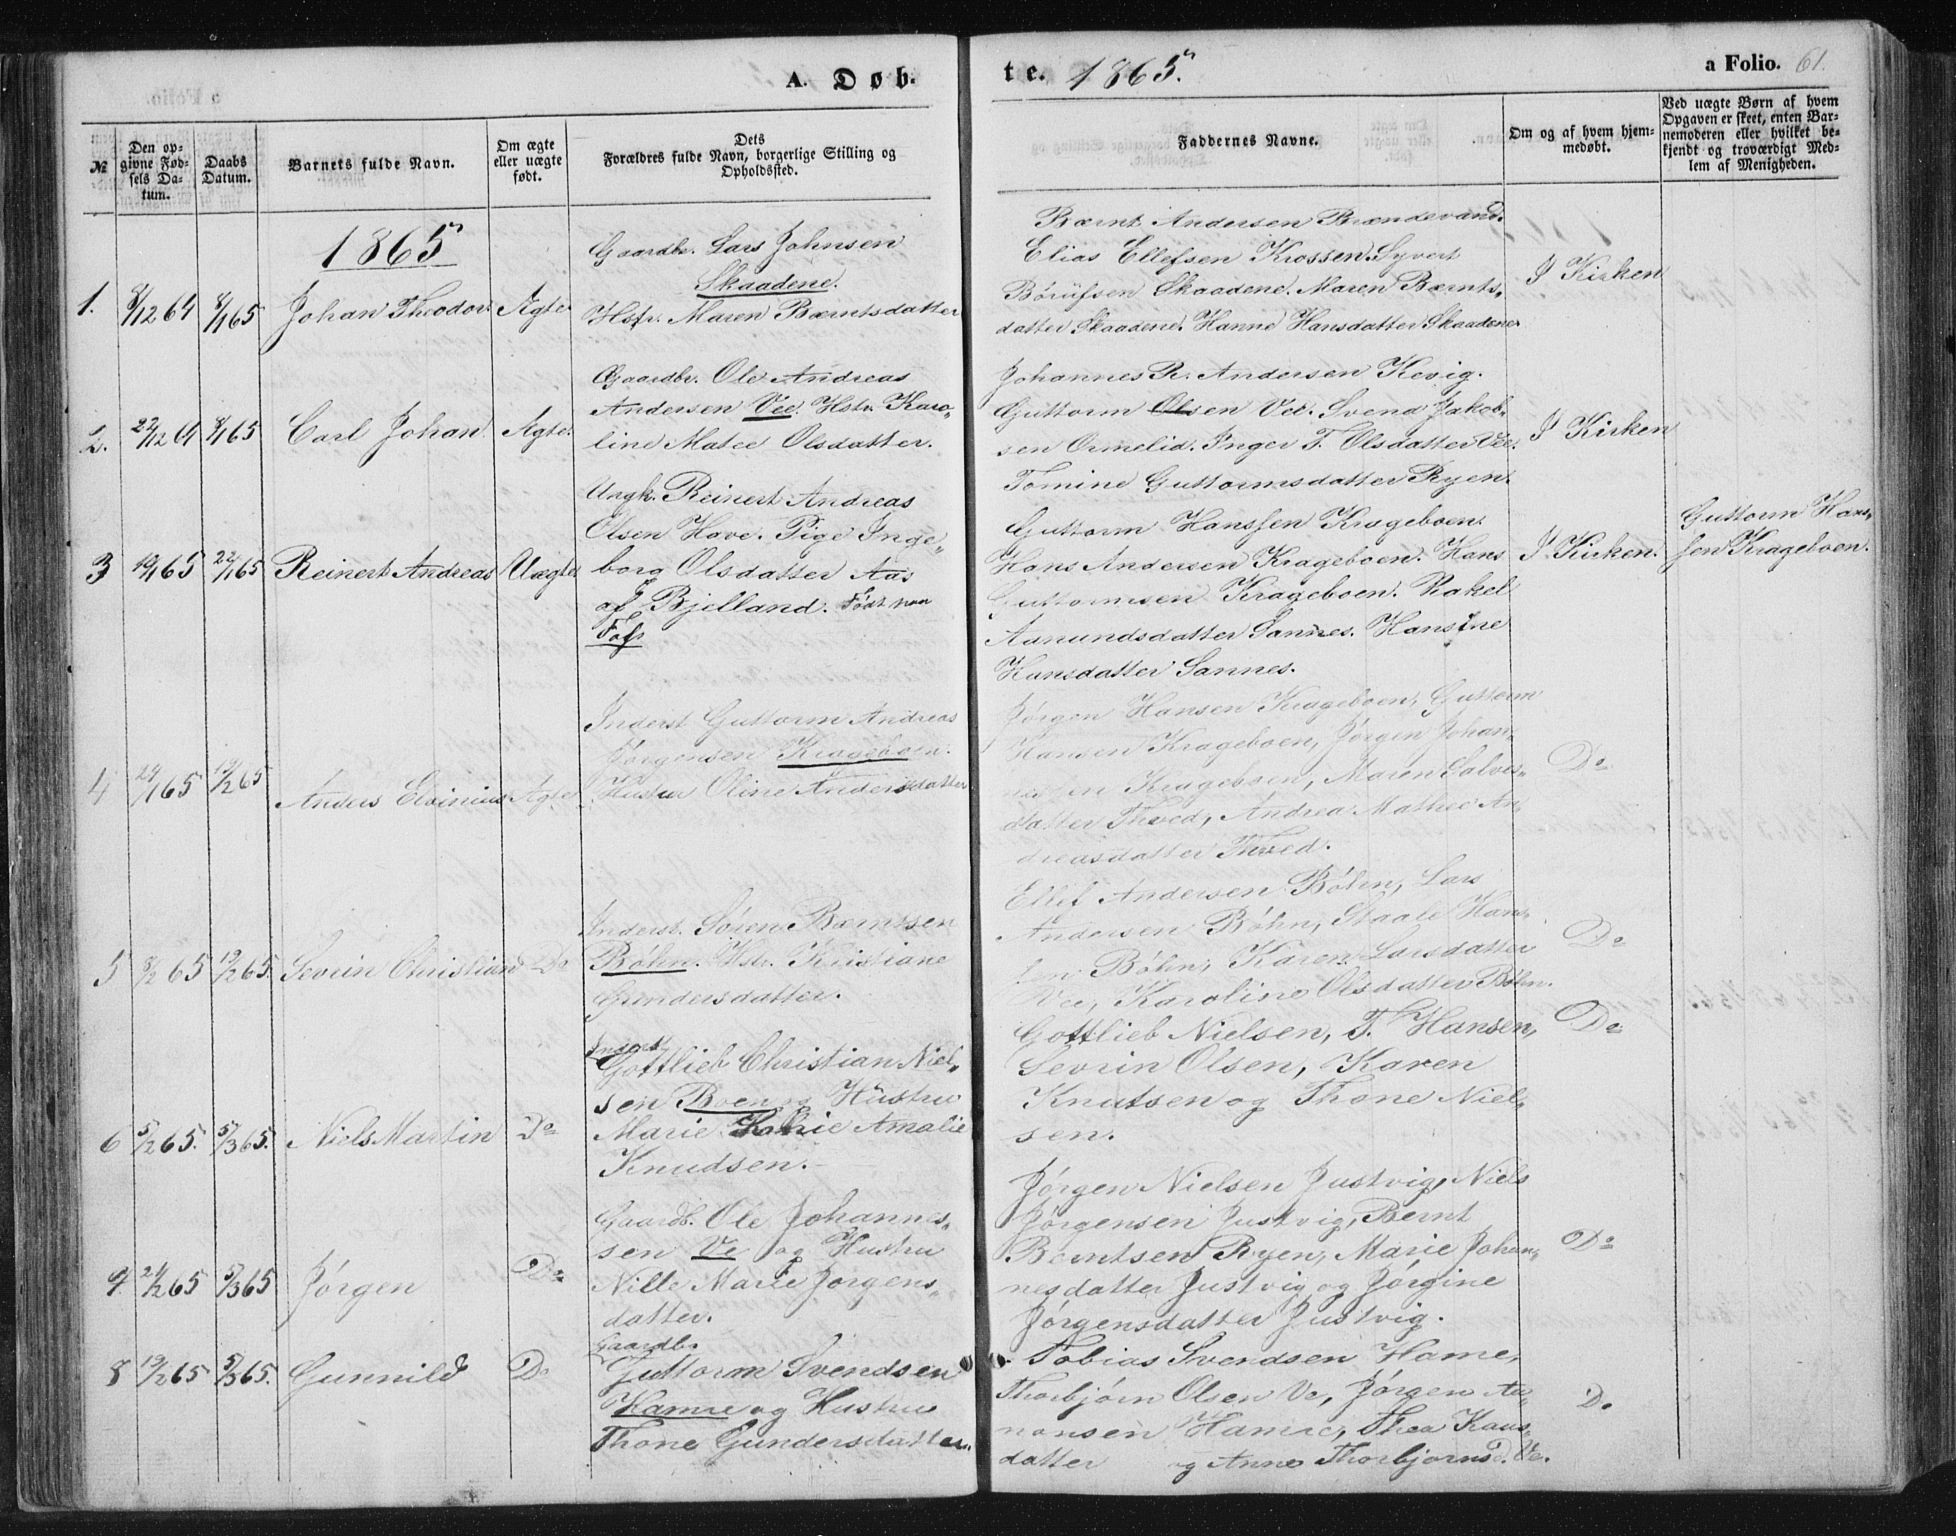 A. Døb.
te. 1865. a Folio. 61.
№
Den opgivne Fødsels Datum.
Daabs Datum.
Barnets fulde Navn.
Om ægte eller uægte født.
Dets Forældres fulde Navn, borgerlige Stilling og Opholdssted.
Faddernes Navne.
Om og af hvem hjemmedøbt.
Ved uægte Børn af hvem Opgaven er skeet, enten Barnemoderen eller hvilket bekjendt og troværdigt Medlem af Menigheden.
1865
1. 8/12 64 8/1 65 Johan Theodor. Ægte.
Gaardbr. Lars Johnsen
Skaadene.
Hstr. Maren Bærntsdatter
Bærnt Andersen Brændevand.
Elias Ellefsen Krossen. Syvert
Børüfsen Skaadene. Maren Bærnts„
datter Skaadene. Hanne Hansdatter Skaadene
I Kirken
2. 22/12 64 8/1 65 Carl Johan. Ægte.
Gaardbr. Ole Andreas
Andersen Vee. Hstr. Karo„
line Matee Olsdatter.
Johannes R. Andersen Kevig.
Guttorm Olsen Vee. Svend Jakob„
sen Ormelid. Inger T. Olsdatter Vee.
Tomine Guttormsdatter Ryen.
I Kirken
3 10/1 65 22/1 65 Reinert Andreas Uægte.
Ungk. Reinert Andreas
Olsen Have. Pige Inge„
borg Olsdatter Aas
af Bjelland. Født paa
Fofs
Guttorm Hanssen Krageboen.
Hans Andersen Krageboen. Hans
Guttormsen Krageboen. Rakel
Aanundsdatter Sannes. Hansine
Hansdatter Sannes.
I Kirken.
Guttorm Hans„
sen Krageboen.
4 24/1 65 19/2 65 Anders Elvinius Ægte
Inderst Guttorm Andreas
Jørgensen Krageboen.
Hustru Oline Andersdatter
Jørgen Hansen Krageboen, Guttorm
Hansen Krageboen, Jørgen Johan„
nesen Krageboen, Maren Salves„
datter Thved, Andrea Mathee An„
dreasdatter Thved.
Do
5 8/2 65 19/2 65. Sevrin Christian Do
Inderst. Søren Bærntsen
Bøhn. Hstr. Kristiane
Gundersdatter.
Ellef Andersen Bøhn, Lars
Andersen Bøhn, Staale Han„
sen Bøhn, Karen Larsdatter
Vee, Karoline Olsdatter Bøhn.
Do
6 5/2 65. 5/3 65. Niels Martin Do
Inderst
Gottlieb Christian Niel„
sen Boen og Hustru
Marie Amalie
Knudsen.
Gottlieb Nielsen, T. Hansen,
Sevrin Olsen, Karen
Knutsen og Thone Niel„
sen.
Do
7 24/2 65 5/3 65 Jørgen Do
Gaardb. Ole Johannes„
sen Ve og Hustru
Nille Marie Jørgens„
datter.
Jørgen Nielsen Justvig, Niels
Jørgensen Justvig, Bernt
Berntsen Ryen, Marie Johan„
nesdatter Justvig og Jørgine
Jørgensdatter Justvig.
Do
8 19/2 65 5/3 65. Gunnild Do
Gaardbr
Guttorm Svendsen
Hamre og Hustru
Thone Gundersdatter.
Tobias Svendsen Hamre,
Thorbjørn Olsen Ve, Jørgen Aa„
nonsen Hamre, Thea Hans„
datter og Anne Thorbjørnsd. Ve.
Do